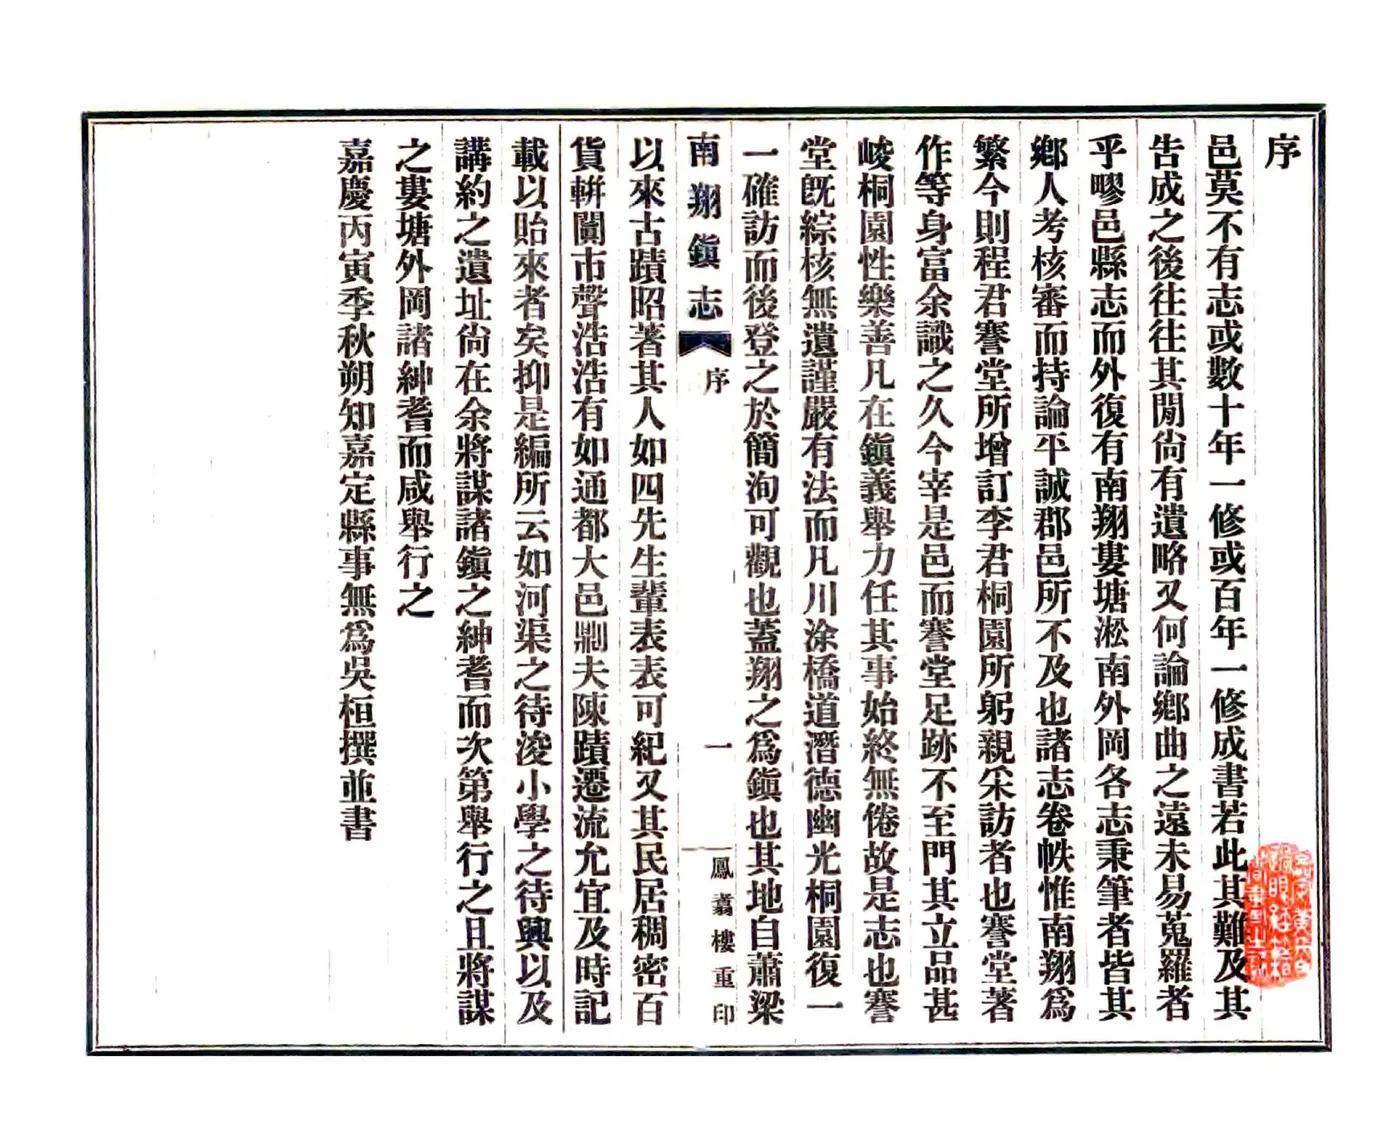 序
邑莫不有志或數十年一修或百年一修成書若此其難及其
告成之後往往其閒尙有遺略又何論鄉曲之遠未易蒐羅者
乎疁邑縣志而外復有南翔婁塘淞南外岡各志秉筆者皆其
鄉人考核審而持論平誠郡邑所不及也諸志卷帙惟南翔爲
繁今則程君謇堂所增訂李君桐園所躬親采訪者也謇堂著
作等身富余識之久今宰是邑而謇堂足跡不至門其立品甚
峻桐園性樂善凡在鎭義舉力任其事始終無倦故是志也謇
堂旣綜核無遺謹嚴有法而凡川涂橋道潛德幽光桐園復一
一確訪而後登之於簡洵可觀也蓋翔之爲鎭也其地自蕭梁
南翔鎭志
序
一
鳳翥樓重印
以來古蹟昭著其人如四先生輩表表可紀又其民居稠密百
貨輧闐市聲浩浩有如通都大邑剬夫陳蹟遷流允宜及時記
載以貽來者矣抑是編所云如河渠之待浚小學之待興以及
講約之遺址尙在余將謀諸鎭之紳耆而次第舉行之且將謀
之婁塘外岡諸紳耆而咸舉行之
嘉慶丙寅季秋朔知嘉定縣事無爲吳桓撰並書